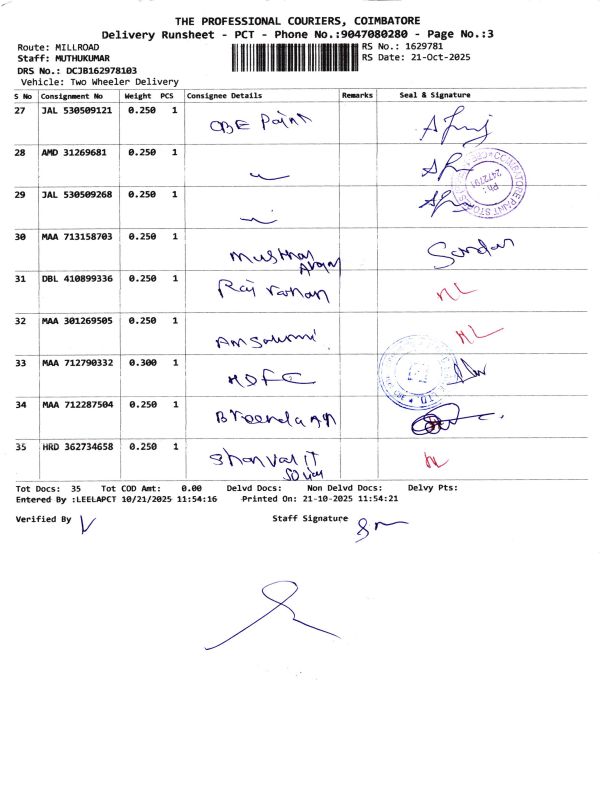 THE PROFESSIONAL COURIERS, COIMBATORE
Delivery Runsheet - PCT - Phone No.:9047080280 - Page No.:3
Route: MILLROAD
RS No.: 1629781
Staff: MUTHUKUMAR
RS Date: 21-Oct-2025
DRS No.: DCJB162978103
Vehicle: Two Wheeler Delivery
S No Consignment No Weight PCS Consignee Details Remarks Seal & Signature
27 JAL 530509121 0.250 1 CBE Paint
28 AMD 31269681 0.250 1
29 JAL 530509268 0.250 1
COIMBATORE PAINT STORES
Ph: 2472701
30 MAA 713158703 0.250 1 Sundar
31 DBL 410899336 0.250 1 NL
32 MAA 301269505 0.250 1 NL
33 MAA 712790332 0.300 1 HDFC
34 MAA 712287504 0.250 1
35 HRD 362734658 0.250 1 NL
Tot Docs: 35 Tot COD Amt: 0.00 Delvd Docs: Non Delvd Docs: Delvy Pts:
Entered By :LEELAPCT 10/21/2025 11:54:16 Printed On: 21-10-2025 11:54:21
Verified By
Staff Signature